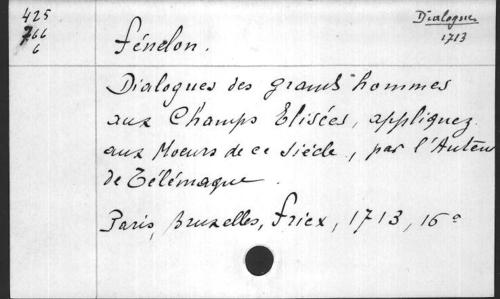 425
766
6
Dialogue
1713
Fénelon.
Dialogues des grands hommes
aux Champs Elisées, appliquez
aux Moeurs de ce siécle, par l'Auteur
de Télémaque.
Paris, Bruxelles, Fricx, 1713, 16°